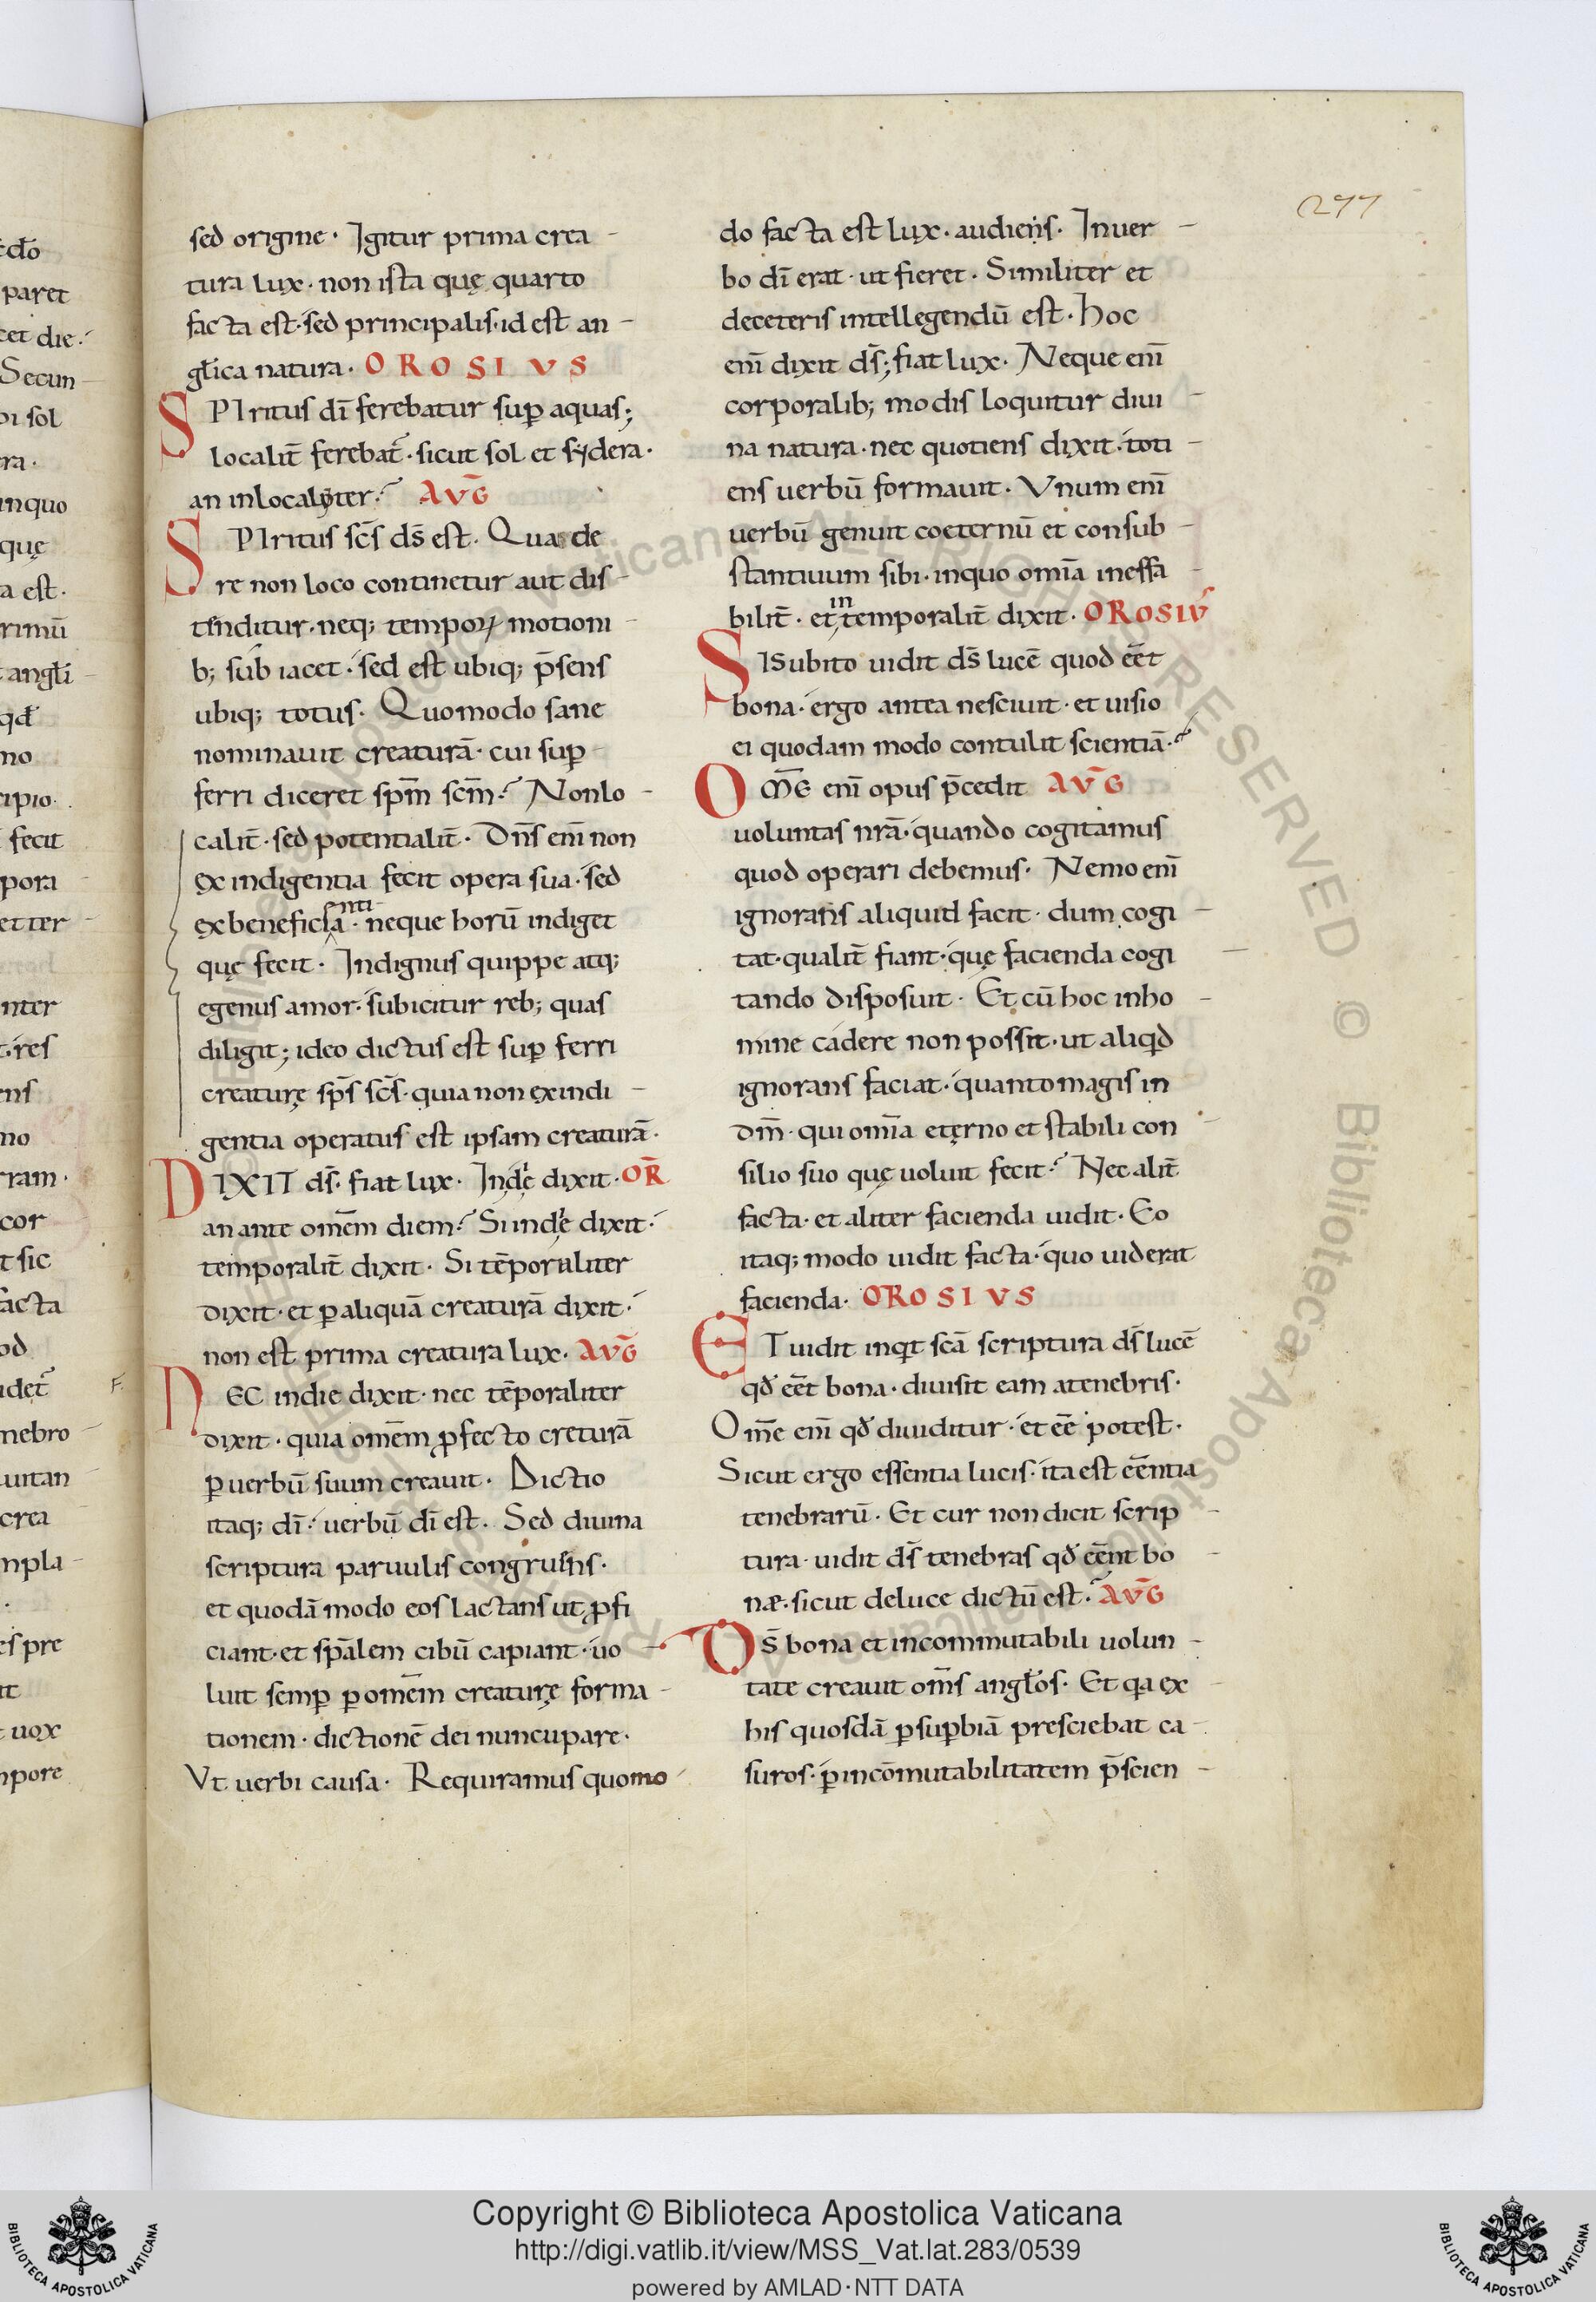 277
sed origine· Igitur prima crea -
tura lux· non ista quę quarto
facta est· sed principalis· id est an -
gl̄ica natura· OROSIVS
SPIritus dī ferebatur sup̄ aquas;
localit̄ ferebat̄· sicut sol et sẏdera·
an inlocaliter? AVḠ
SPIritus sc̄s ds̄ est· Qua de
re non loco continetur aut dis -
tenditur· neq; temporꝝ motioni -
b; sub iacet· sed est ubiq; p̄sens
ubiq; totus· Quomodo sane
nominauit creaturā· cui sup̄ -
ferri diceret sp̄m sc̄m? Non lo -
calit̄· sed potentialit̄· Dn̄s enī non
ex indigentia fecit opera sua· sed
ex beneficientia· neque horū indiget
quę fecit· Indignus quippe atq;
egenus amor· subicitur reb; quas
diligit; ideo dictus est sup̄ ferri
creaturę sp̄s sc̄s· quia non ex indi -
gentia operatus est ipsam creaturā·
DIXIT ds̄· fiat lux· In die dixit· OR̄
an ante omēm diem? Si in die dixit·
temporalit̄ dixit· Si tēporaliter
dixit· et ꝑ aliquā creaturā dixit·
non est prima creatura lux· AVḠ
NEC in die dixit· nec tēporaliter
dixit· quia omēm ꝓfecto creturā
ꝑ uerbū suum creauit· Dictio
itaq; dī· uerbū dī est· Sed diuina
scriptura paruulis congruens·
et quodā modo eos lactans ut ꝓfi
ciant· et sp̄alem cibū capiant· uo -
luit semꝑ ꝑ omēm creaturę forma -
tionem· dictionē dei nuncupare·
Vt uerbi causa· Requiramus quomo
do facta est lux· audiens· In uer -
bo dī erat· ut fieret· Similiter et
de ceteris intellegendū est· hoc
enī dixit ds̄; fiat lux· Neque enī
corporalib; modis loquitur diui -
na natura· nec quotiens dixit· toti -
ens uerbū formauit· Vnum enī
uerbū genuit coeternū et consub -
stantiuum sibi· in quo omīa ineffa -
bilit̄· et intemporalit̄ dixit· OROSIV̄
SI Subito uidit ds̄ lucē quod eēt
bona· ergo antea nesciuit· et uisio
ei quodam modo contulit scientiā?
OM̄E enī opus p̄cedit AVḠ
uoluntas nrā· quando cogitamus
quod operari debemus· Nemo enī
ignorans aliquid facit· dum cogi -
tat· qualit̄ fiant· quę facienda cogi -
tando disposuit· Et cū hoc in ho -
mine cadere non possit· ut aliqd
ignorans faciat· quanto magis in
dm̄· qui omīa eterno et stabili con -
silio suo quę uoluit fecit? Nec alit̄
facta· et aliter facienda uidit· Eo
itaq; modo uidit facta· quo uiderat
facienda· OROSIVS
ET uidit inqt scā scriptura ds̄ lucē
qd̄ eēt bona· diuisit eam a tenebris·
Om̄e enī qd̄ diuiditur· et eē potest·
Sicut ergo essentia lucis· ita est eēntia
tenebrarū· Et cur non dicit scrip -
tura· uidit ds̄ tenebras qd̄ eēnt bo -
næ· sicut de luce dictū est? AVḠ
Ds̄ bona et incommutabili uolun -
tate creauit om̄s angl̄os· Et qa ex -
his quosdā ꝑ suꝑbiā presciebat ca -
suros· ꝑ incōmutabilitatem p̄scien -
Copyright © Biblioteca Apostolica Vaticana
http://digi.vatlib.it/view/MSS_Vat.lat.283/0539
powered by AMLAD·NTT DATA
BIBLIOTECA APOSTOLICA VATICANA
BIBLIOTECA APOSTOLICA VATICANA